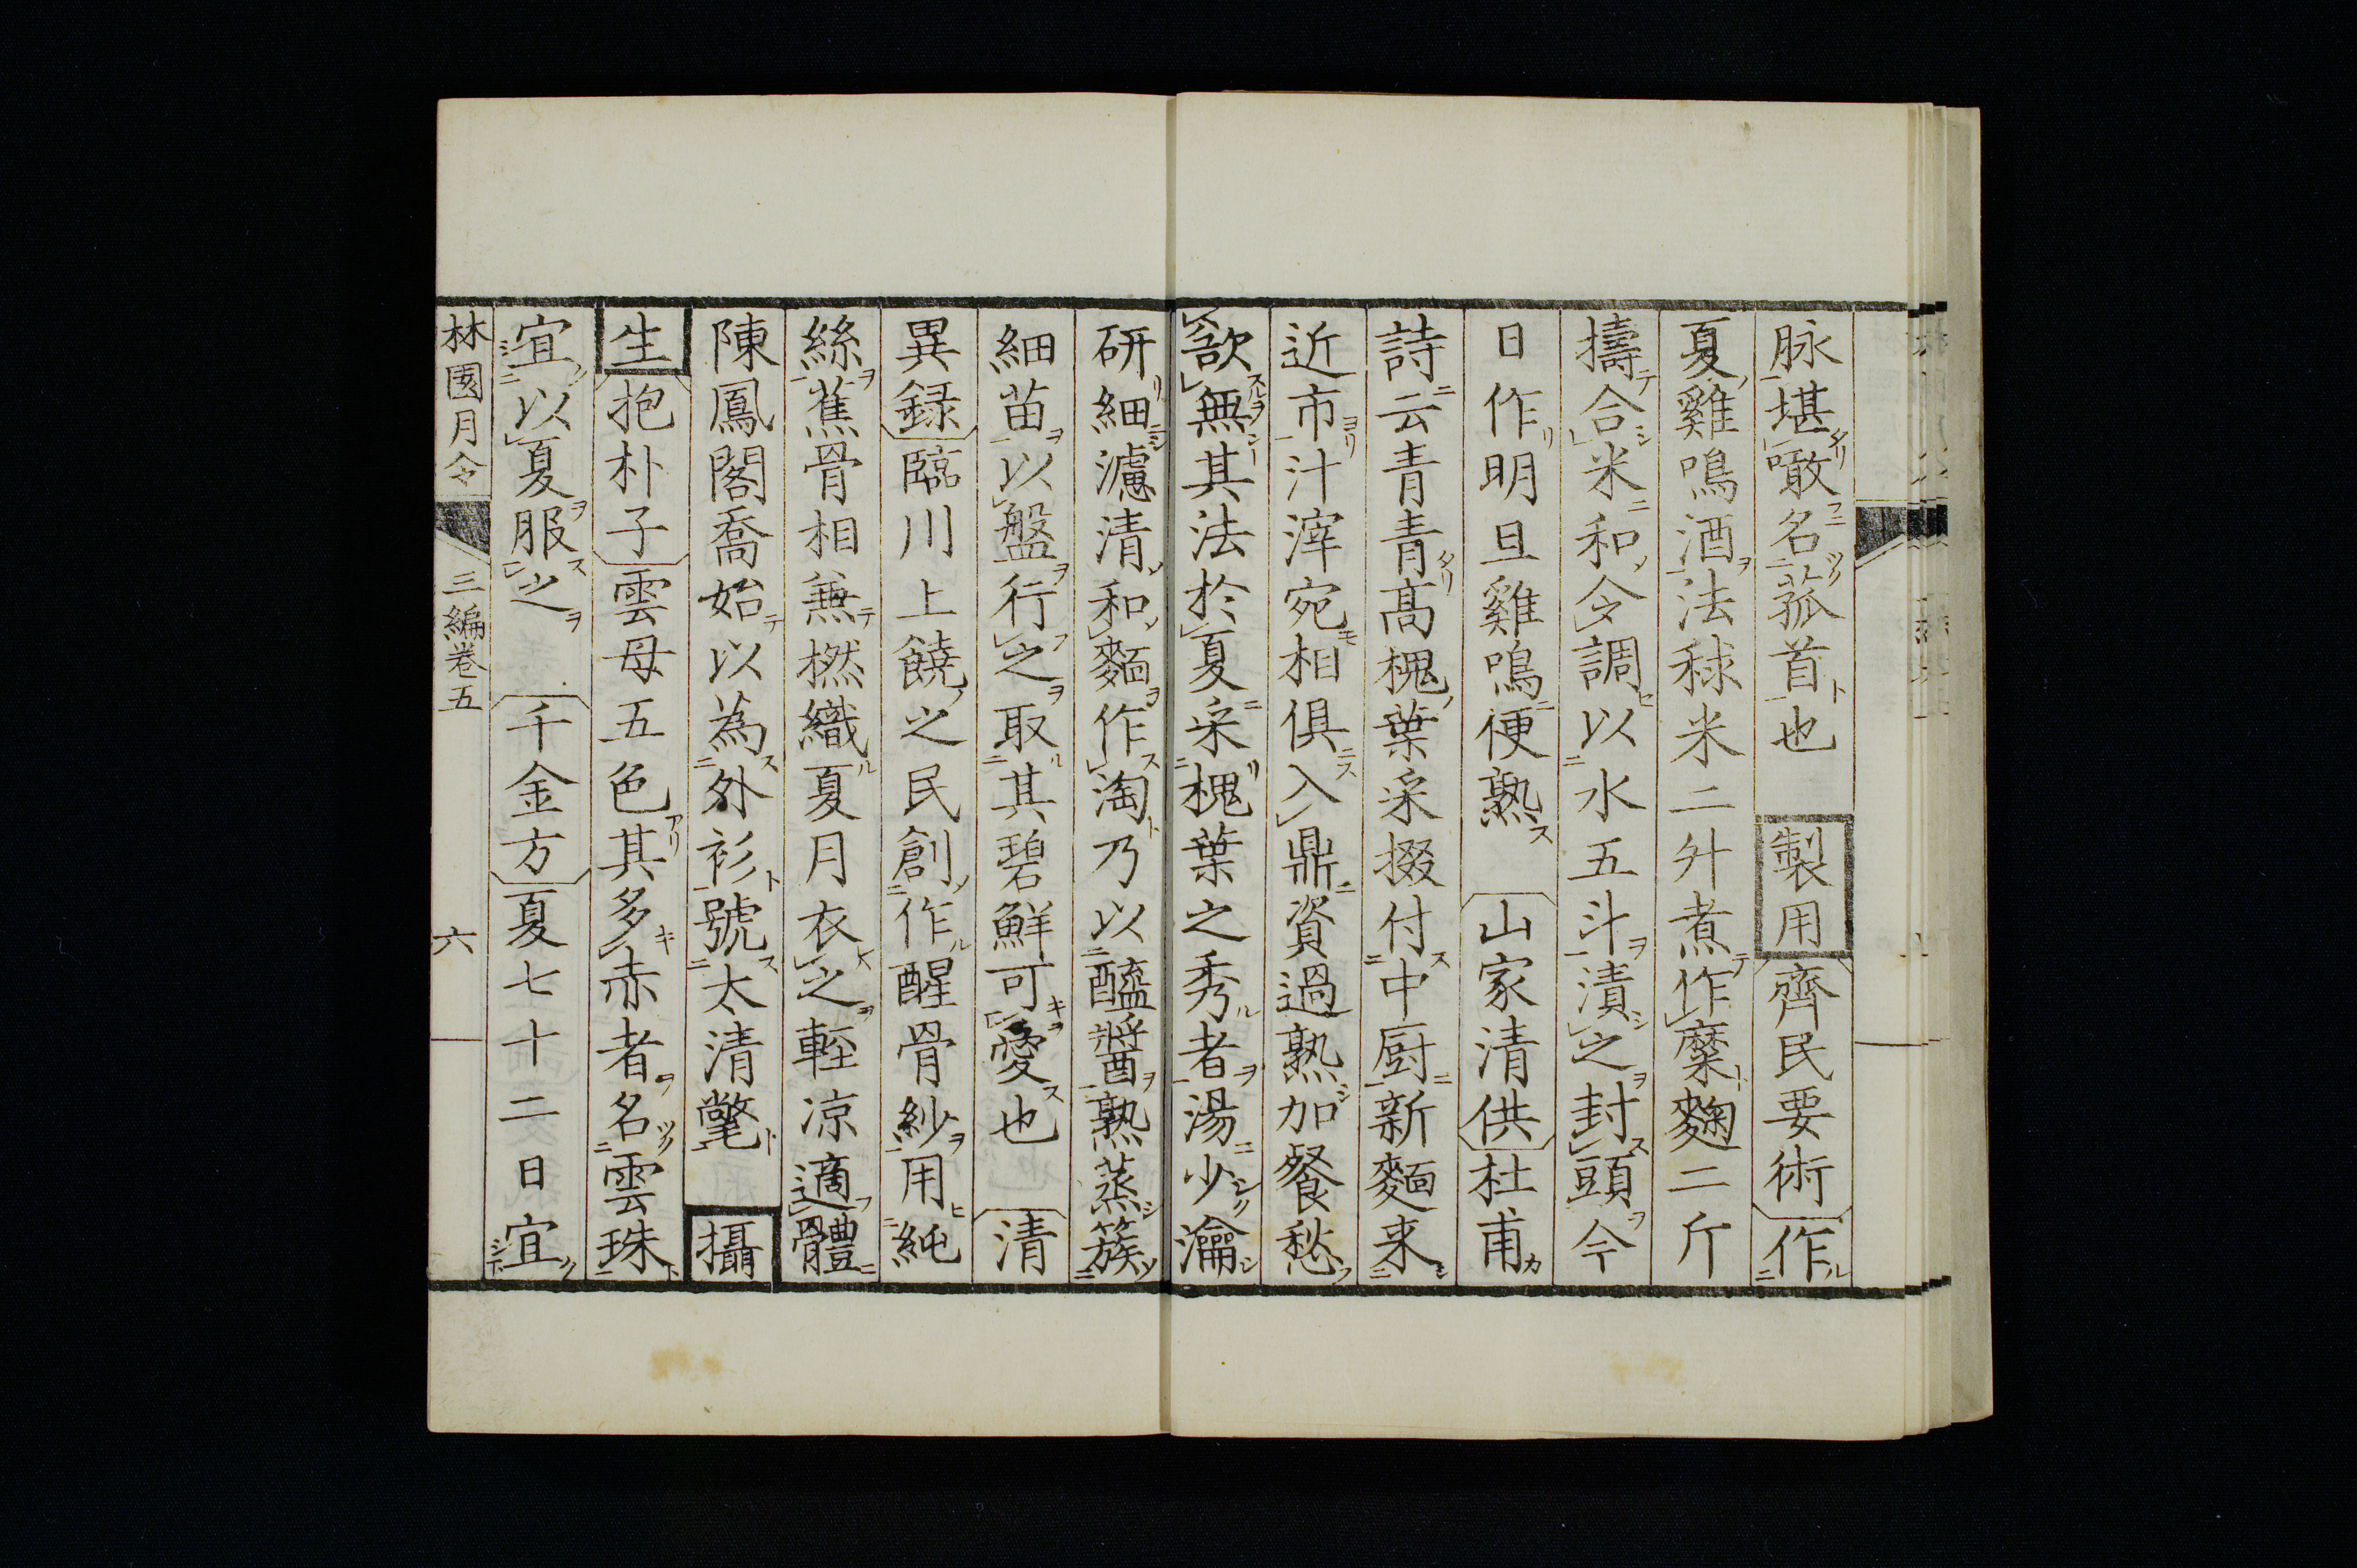 脉堪噉名菰首也 製用 齊民要術 作
夏雞鳴酒法秫米二升煮作糜麴二斤
擣合米和令調以水五斗漬之封頭今
日作明旦雞鳴便熟 山家清供 杜甫
詩云青青高槐葉采掇付中厨新麵来
近市汁滓宛相俱入鼎資過熟加餐愁
欲無其法於夏采槐葉之秀者湯少瀹
研細濾清和麵作淘乃以醯醬熟蒸簇
細苗以盤行之取其碧鮮可愛也 清
異録 臨川上饒之民創作醒骨紗用純
絲蕉骨相兼撚織夏月衣之輕凉適體
陳鳳閣喬始以為外衫號太清氅 攝
生 抱朴子 雲母五色其多赤者名雲珠
宜以夏服之 千金方 夏七十二日宜
林園月令 三編卷五 六